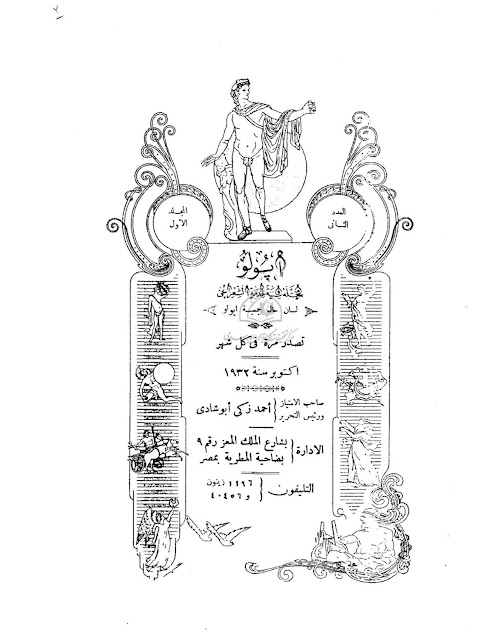 العدد
الثانى
المجلد
الأول
أپولو
لسان حال جمعية اپولو
تصدر مرة فى كل شهر
اكتوبر سنة ١٩٣٢
صاحب الامتياز
ورئيس التحرير
أحمد زكى أبوشادى
الادارة
بشارع الملك المعز رقم ٩
بضاحية المطرية بمصر
التليفون
١٤٢٦ زيتون
و ٤٠٤٥٦